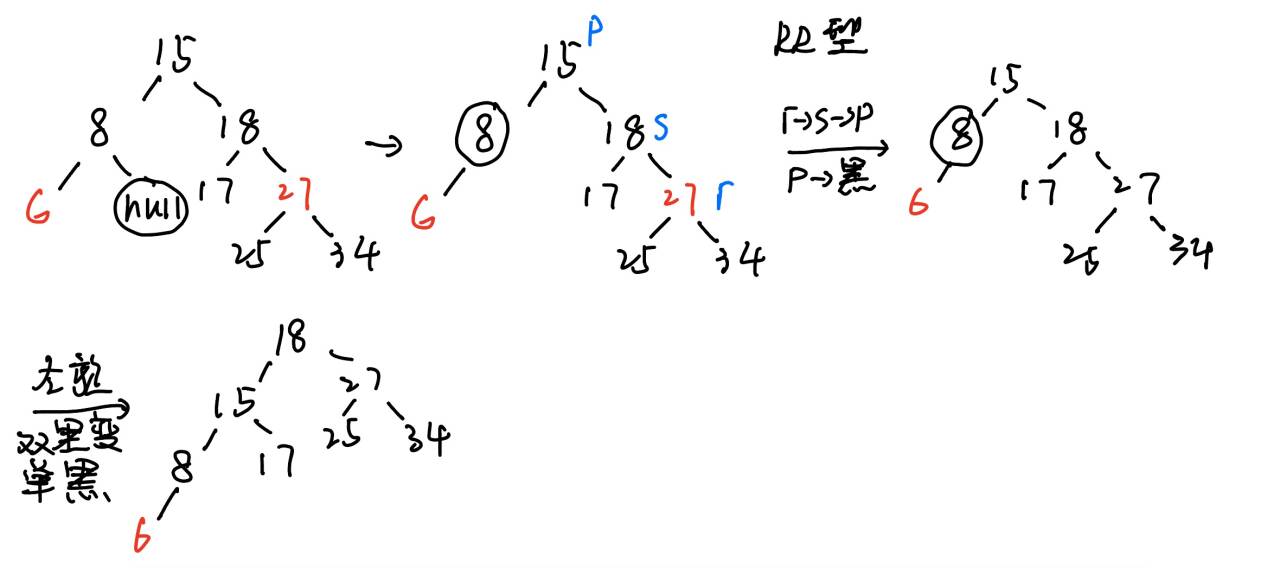 15
8 18
6 null 17 27
25 34
→
15 P
8 18 S
6 17 27 r
25 34
RR型
r→S→P
P→黑
15
8 18
6 17 27
25 34
左旋
双黑变
单黑
18
15 27
8 17 25 34
6